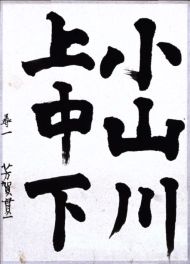 小山川
上中下
尋一
芳賀貫一